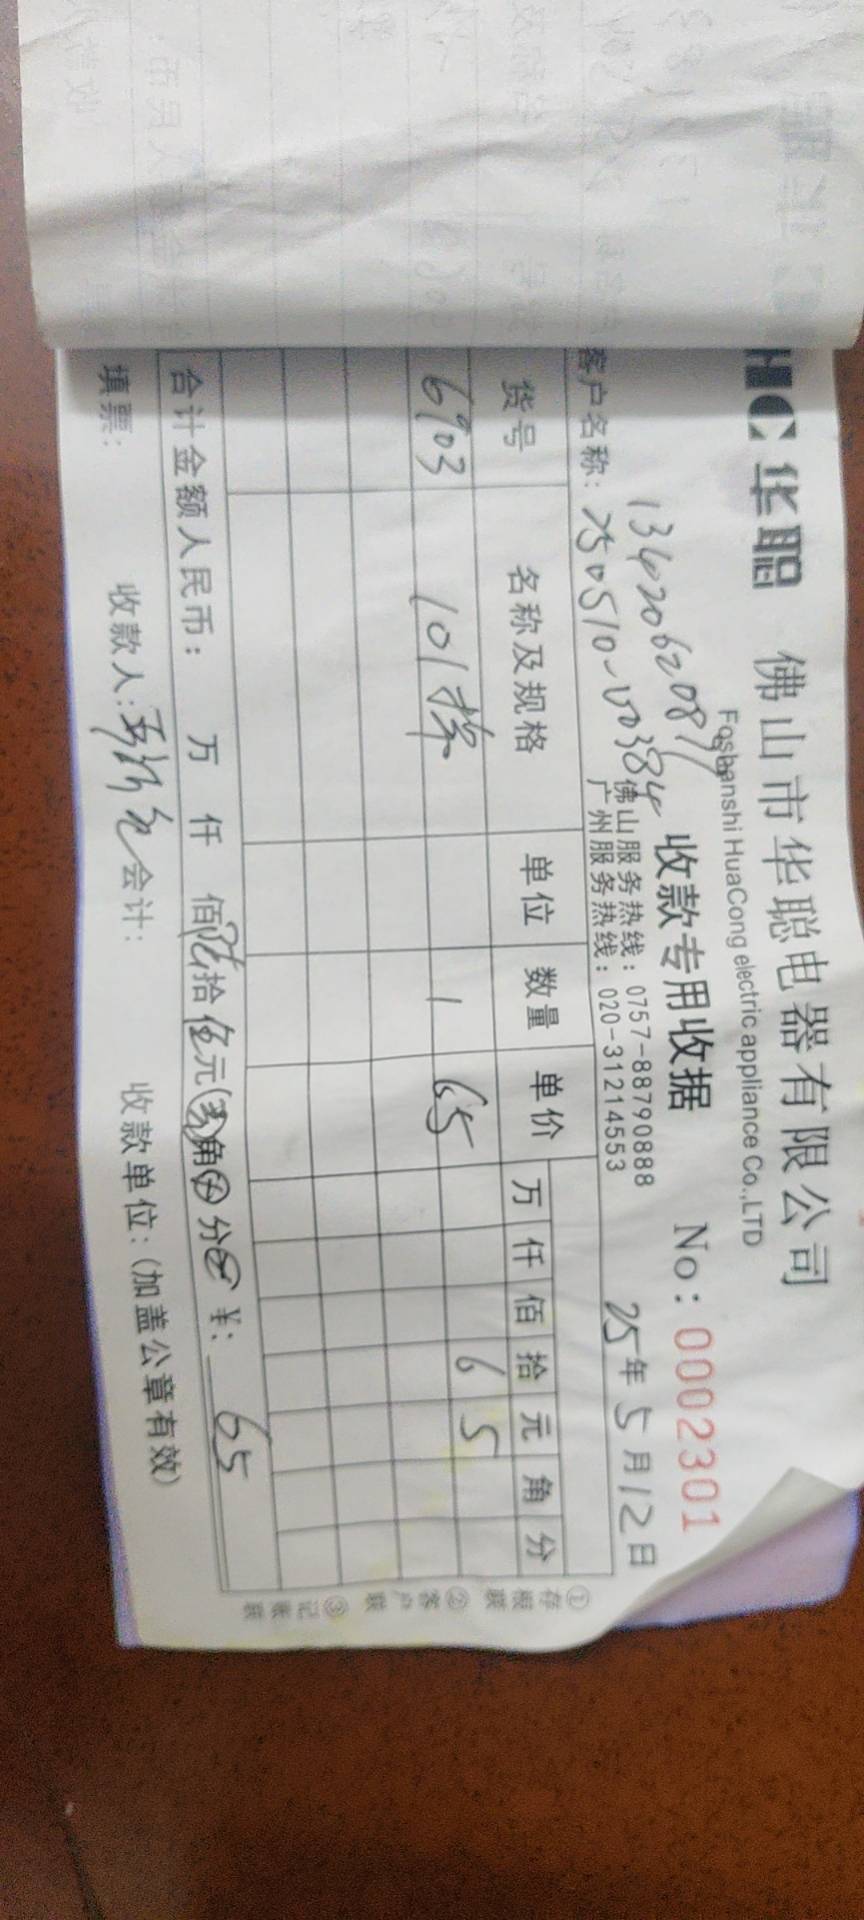 HC 华聪 佛山市华聪电器有限公司
Foshanshi HuaCong electric appliance Co.,LTD
收款专用收据 No: 0002301
佛山服务热线: 0757-88790888
广州服务热线: 020-31214553
25年5月12日
客户名称: 250510-00384
货号 名称及规格 单位 数量 单价 万 仟 佰 拾 元 角 分
6903 101 1 65 6 5
合计金额人民币: 万 仟 佰 陆拾 伍元 角 分 ¥: 65
填票: 收款人: 会计: 收款单位: (加盖公章有效)
①存根联 ②客户联 ③记账联